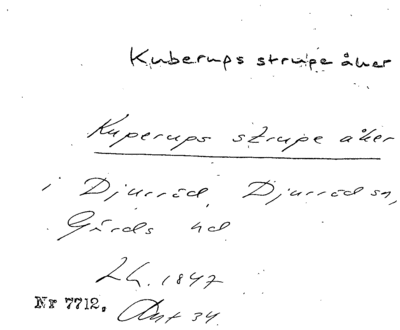 Kuberups strupe åker
Kuperups strupe åker
i Djurröd, Djurröds sn,
Gärds hd
Lh. 1847
Nr 7712. Akt 34